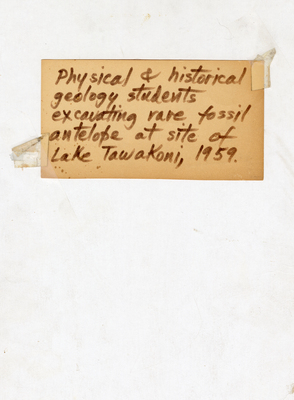 Physical & historical
geology students
excavating rare fossil
antelope at site of
Lake Tawakoni, 1959.